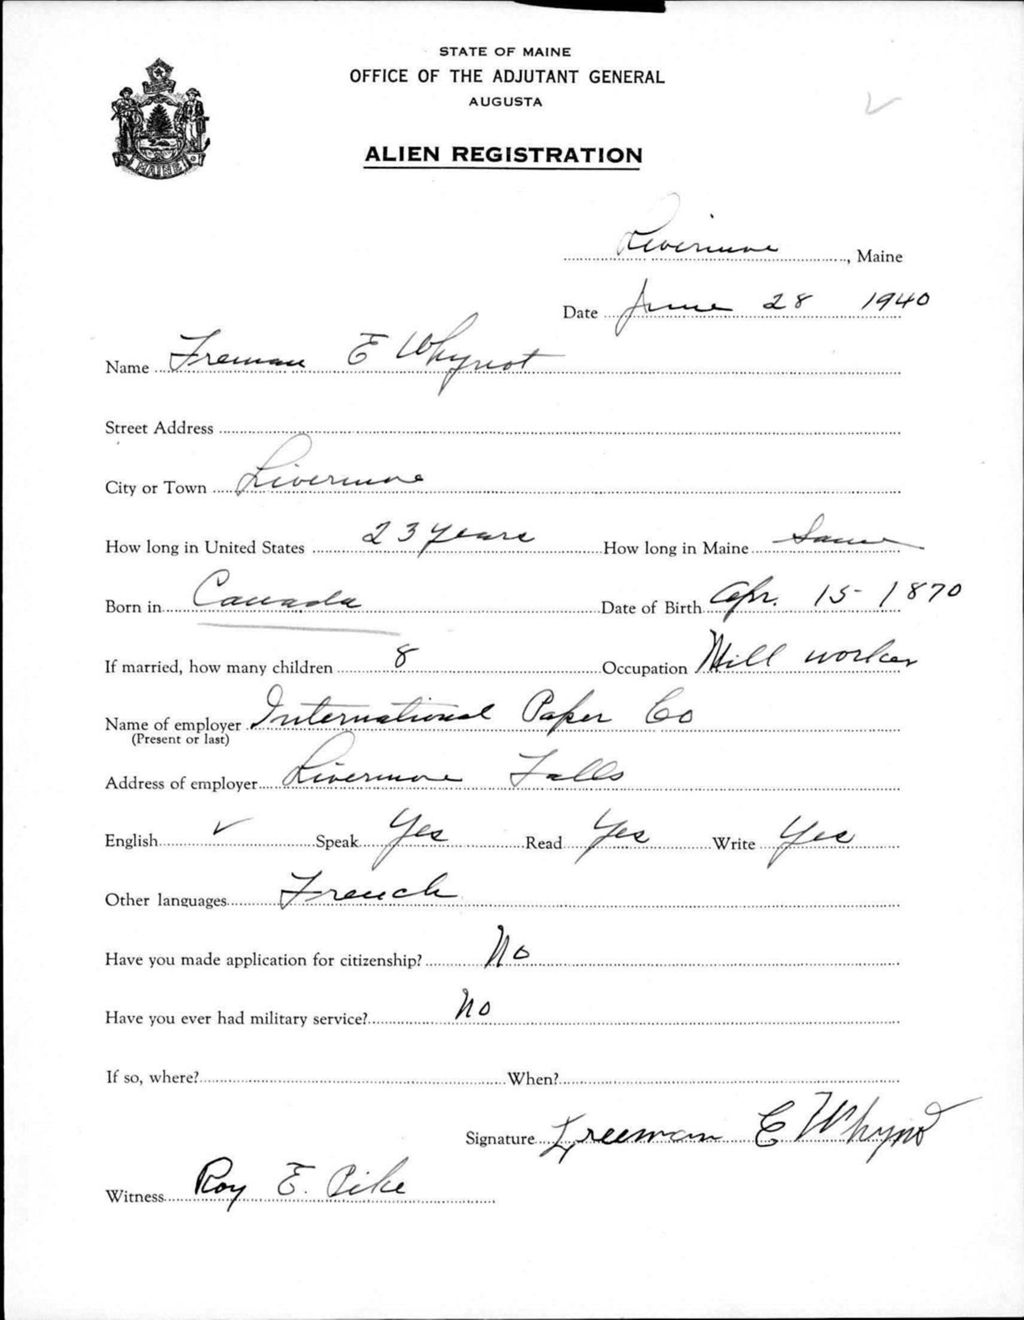 STATE OF MAINE
OFFICE OF THE ADJUTANT GENERAL
AUGUSTA
ALIEN REGISTRATION
MAINE
Livermore, Maine
Date June 28 1940
Name Freman E Whynot
Street Address
City or Town Livermore
How long in United States 23 years How long in Maine Same
Born in Canada Date of Birth Apr. 15 - 1870
If married, how many children 8 Occupation Mill worker
Name of employer International Paper Co
(Present or last)
Address of employer Livermore Falls
English ✓ Speak Yes Read Yes Write Yes
Other languages French
Have you made application for citizenship? No
Have you ever had military service? No
If so, where? When?
Signature Freeman E Whynot
Witness Roy E. Pike